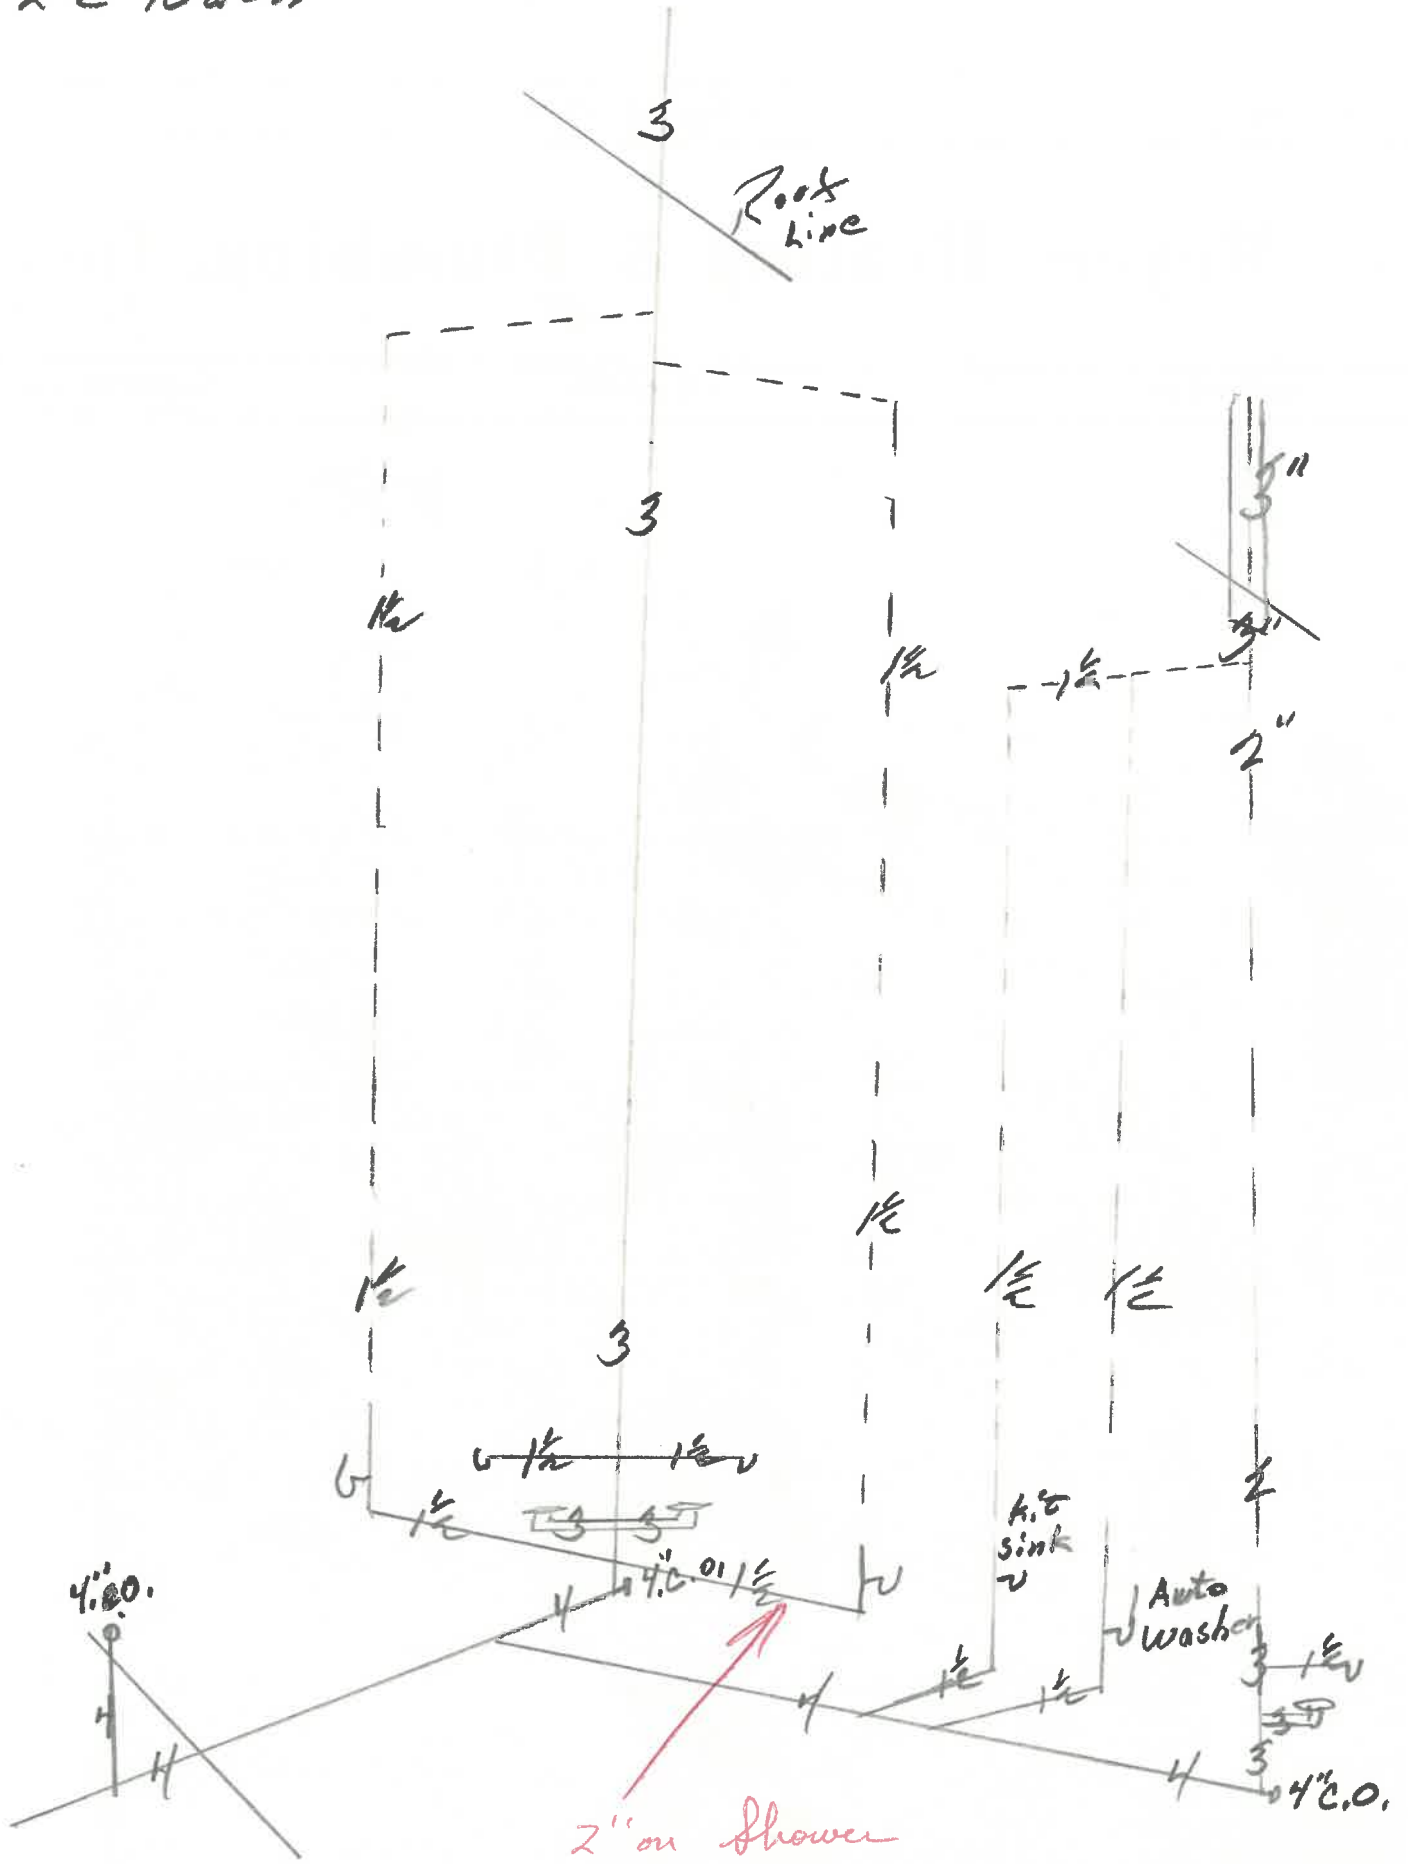 3
Roof
Line
3
3"
1½
3"
1½
1½
2"
1½
1½
1½
1½
3
2
1½
1½
Kit
sink
1½
3
3
4" C.O.
1½
4
4" C.O.
Auto
Washer
3
1½
1½
1½
3
4
4
4
3
4
4" C.O.
2" on Shower